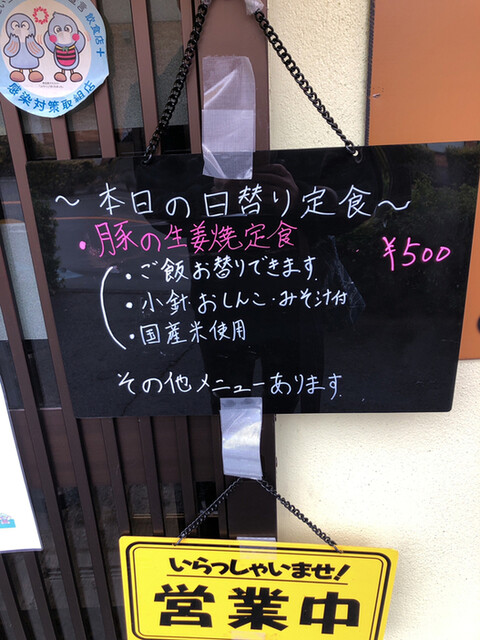 飲食店+
感染対策取組店
～本日の日替り定食～
・豚の生姜焼定食
¥500
・ご飯お替りできます
・小針・おしんこ・みそ汁付
・国産米使用
その他メニューあります
いらっしゃいませ!
営業中